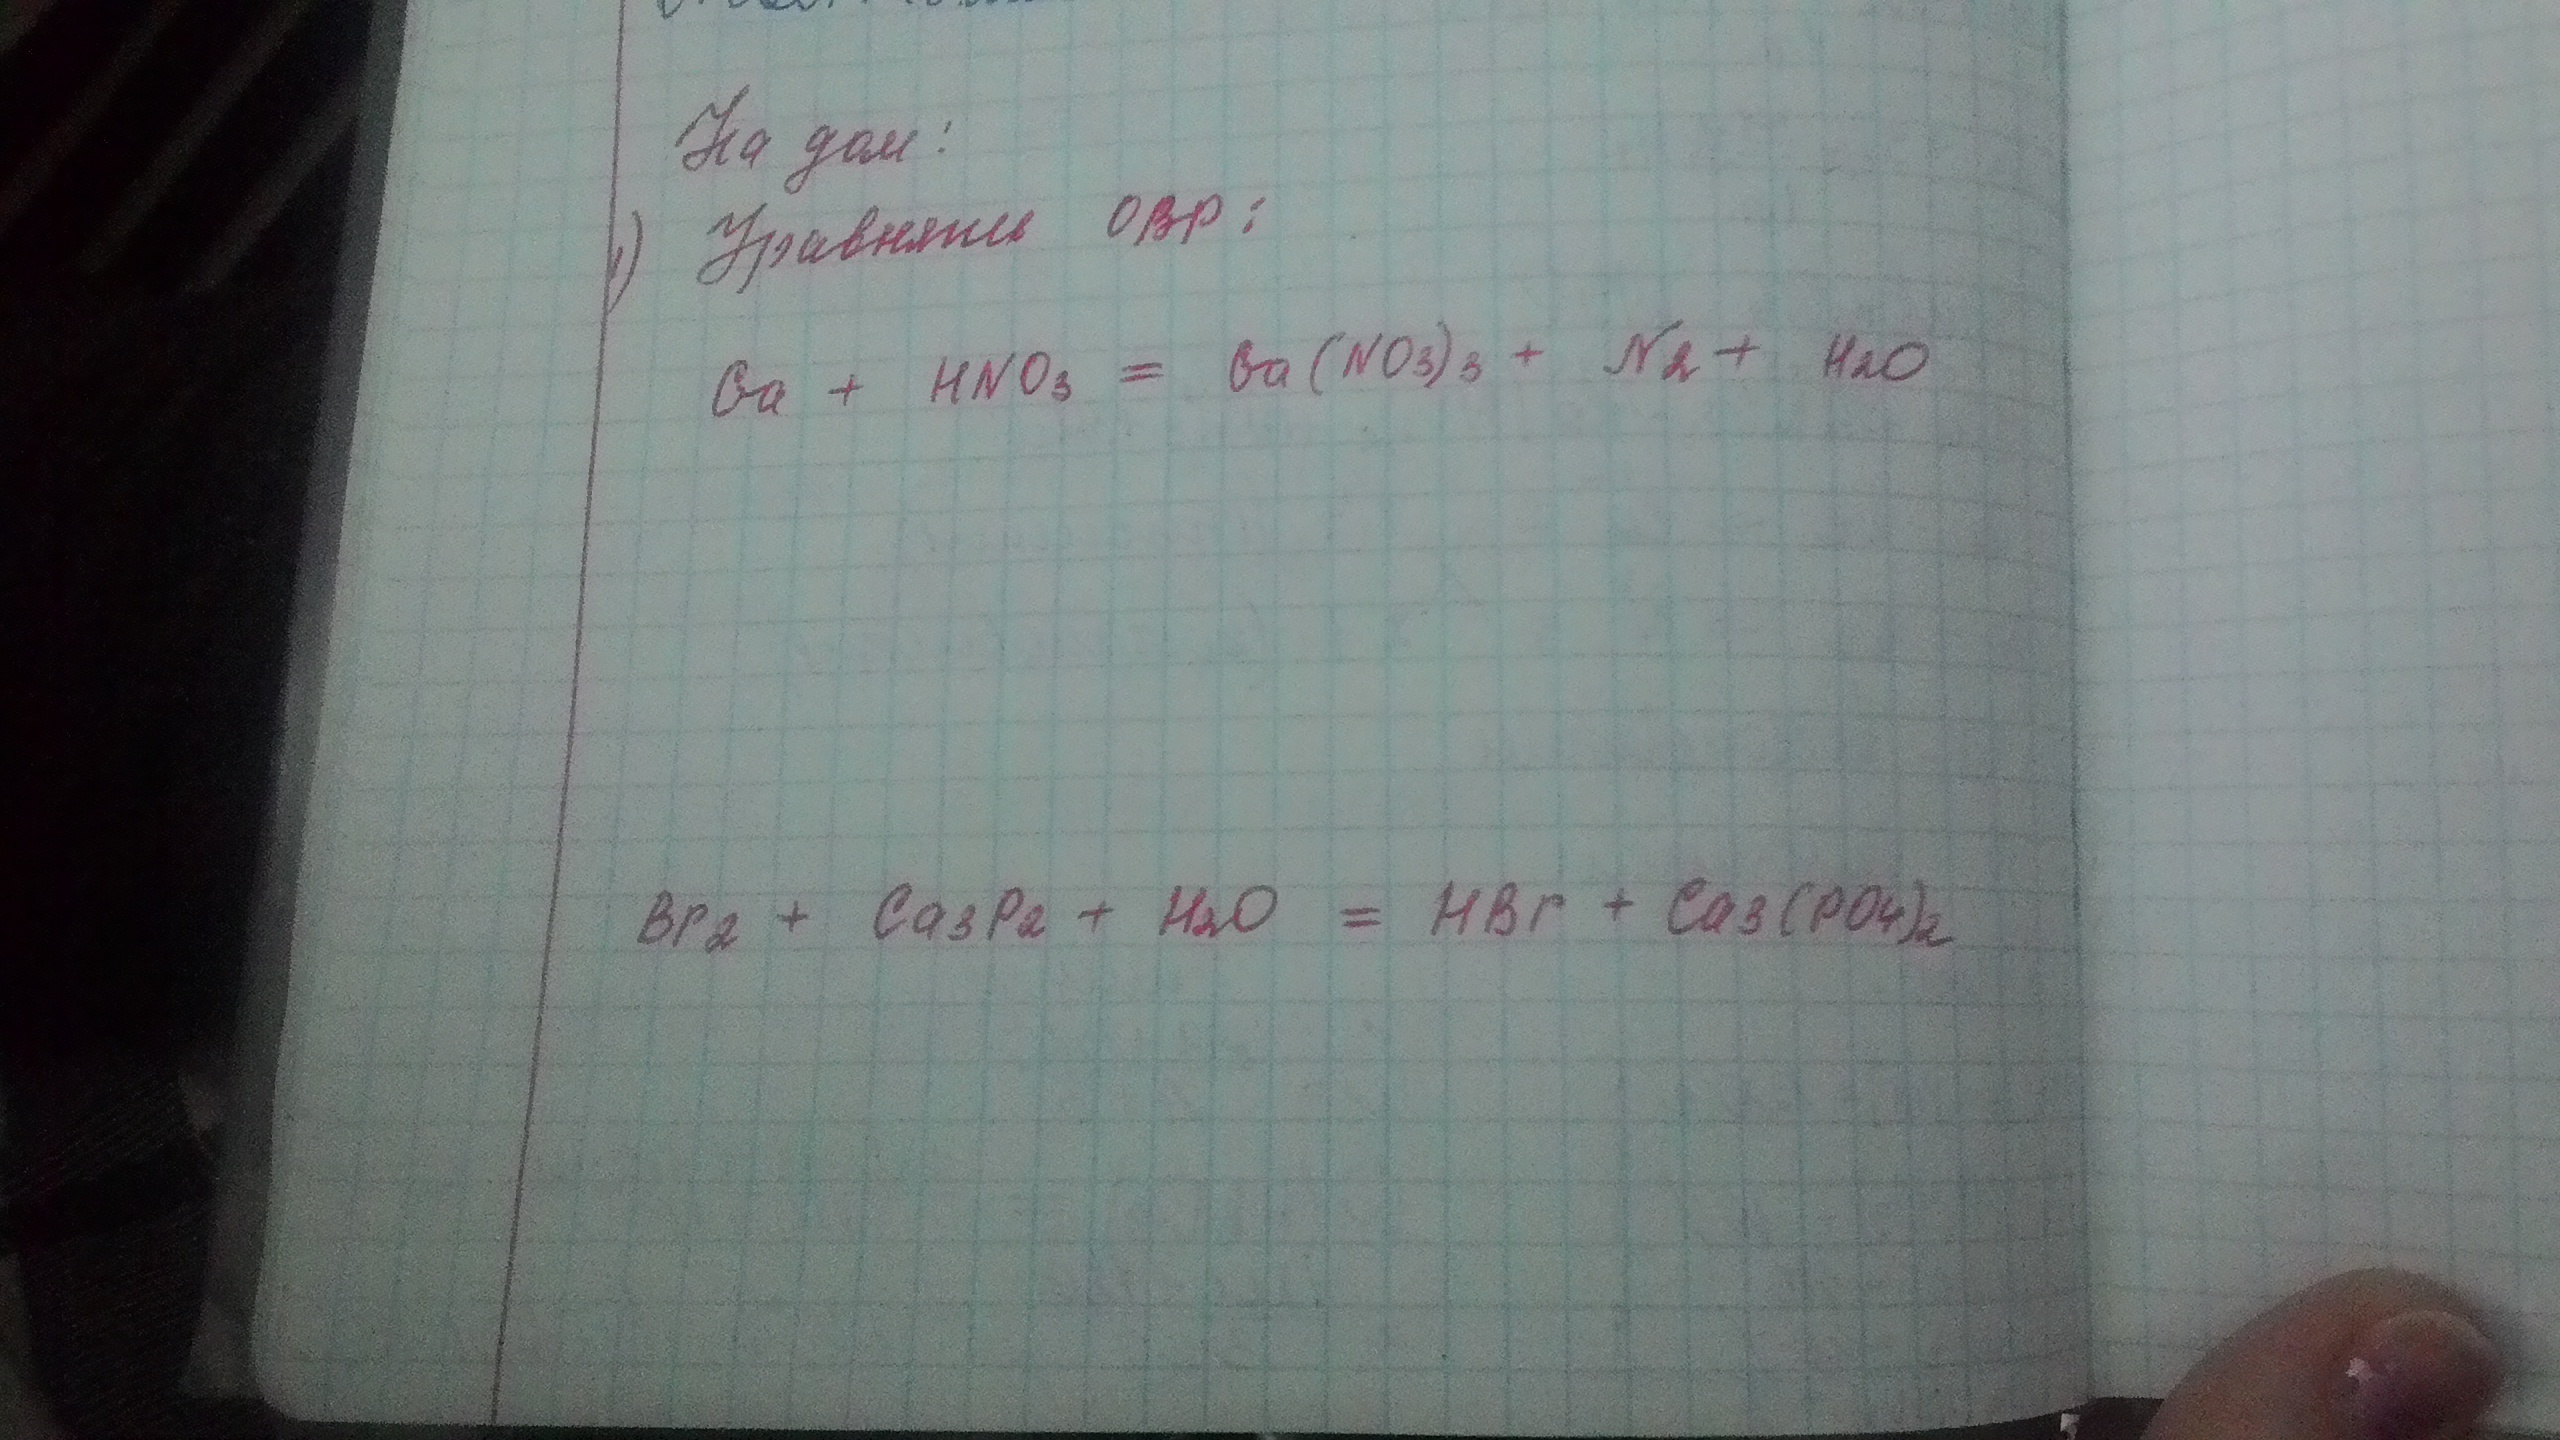 На дом:
1) Уравнять ОВР:
Ga + HNO3 = Ga(NO3)3 + N2 + H2O
Br2 + Ca3P2 + H2O = HBr + Ca3(PO4)2